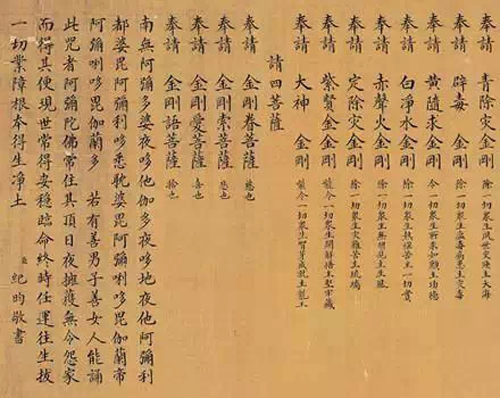 奉請 青除灾金剛 除一切眾生夙世灾殃主大海
奉請 辟毒金剛 除一切眾生瘟毒病患主灾毒
奉請 黃隨求金剛 令一切眾生所求如願主功德
奉請 白淨水金剛 除一切眾生熱惱苦主一切寶
奉請 赤聲火金剛 除一切眾生無明見主生風
奉請 定除灾金剛 除一切眾生灾難苦主琉璃
奉請 紫賢金剛 能令一切眾生開解悟主堅牢藏
奉請 大神 能令一切眾生智芽成就主龍王
請四菩薩
奉請 金剛眷菩薩 慈也
奉請 金剛索菩薩 悲也
奉請 金剛愛菩薩 喜也
奉請 金剛語菩薩 捨也
南無阿彌多婆夜哆他伽多夜哆地夜他阿彌利
都婆毘阿彌利哆悉躭婆毘阿彌唎哆毘伽蘭帝
阿彌唎哆毘伽蘭多 若有善男子善女人能誦
此咒者阿彌陀佛常住其頂日夜擁護無令怨家
而得其便現世常得安穩臨命終時任運往生拔
一切業障根本得生淨土 臣紀昀敬書